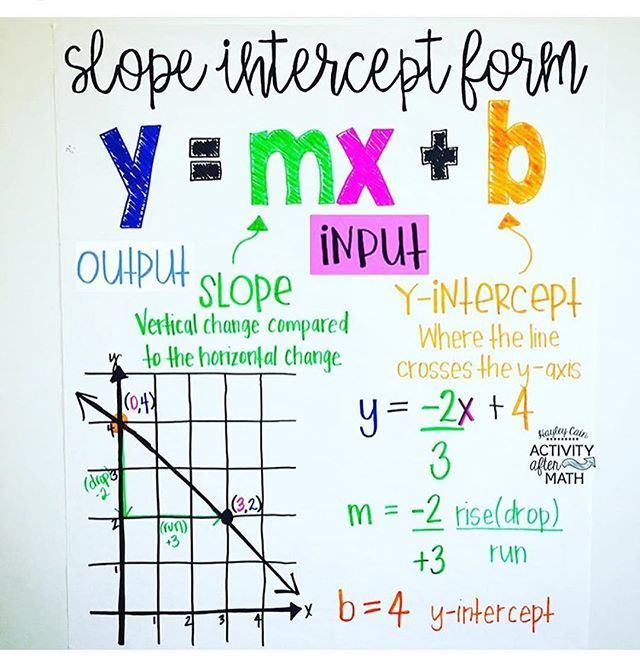 slope intercept form
y = mx + b
OUTPUT
INPUT
SLOPE
Vertical change compared
to the horizontal change
Y-INTERCEPT
Where the line
crosses the y-axis
y
(0,4)
4
3
(drop)
-2
(3,2)
2
(run)
+3
1
1 2 3 4
x
y = -2x + 4
3
Hayley Cain
ACTIVITY
after
MATH
m = -2 rise(drop)
+3 run
b = 4 y-intercept